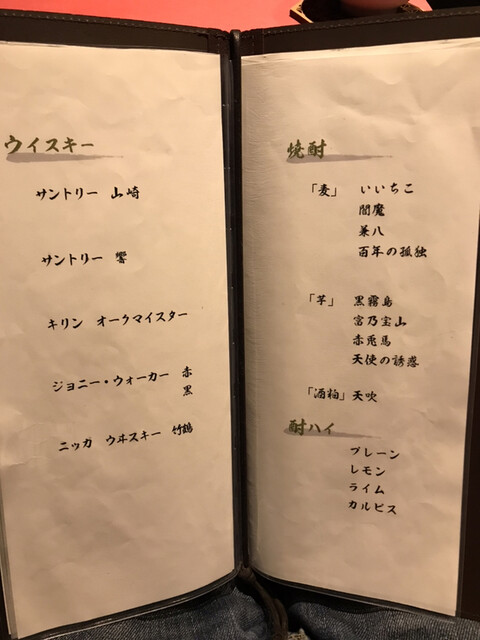 ウイスキー
サントリー 山崎
サントリー 響
キリン オークマイスター
ジョニー・ウォーカー 赤
黒
ニッカ ウヰスキー 竹鶴
焼酎
「麦」 いいちこ
閻魔
兼八
百年の孤独
「芋」 黒霧島
富乃宝山
赤兎馬
天使の誘惑
「酒粕」天吹
酎ハイ
プレーン
レモン
ライム
カルピス